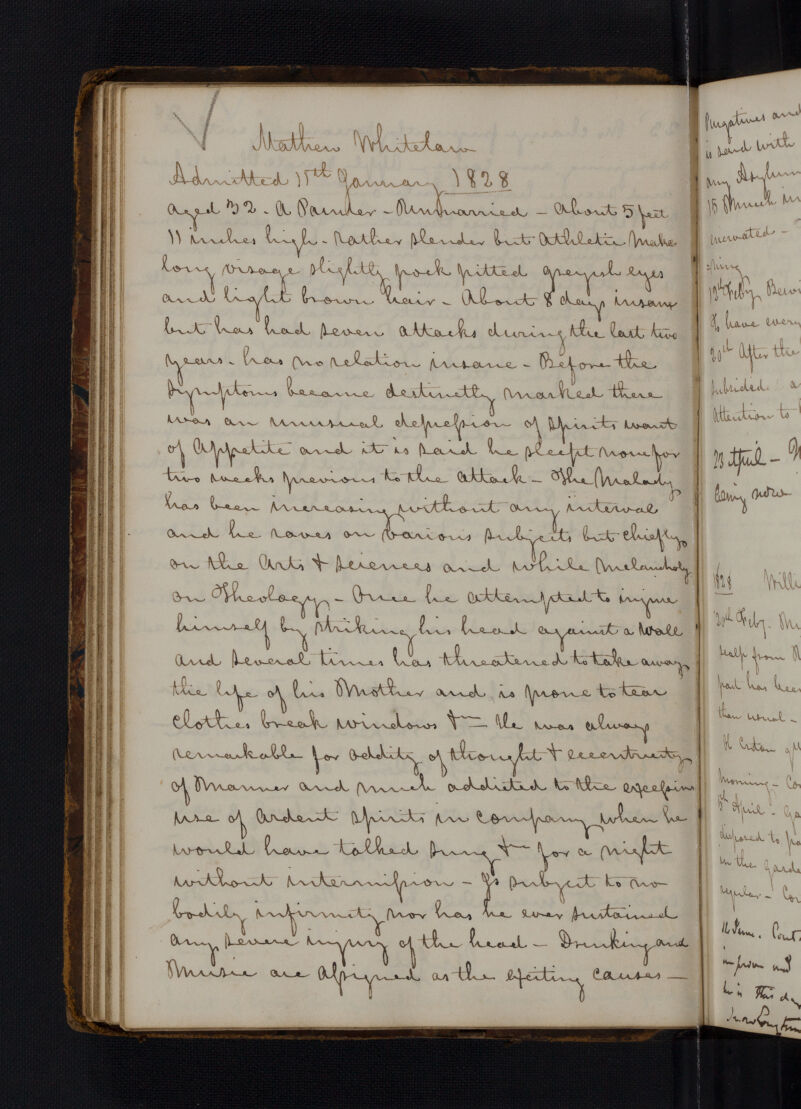 Mathew Whitelaw
Admitted 15th January 1828
aged 32 - A Painter - Unmarried - About 5 feet
11 inches high - Rather slender but Athletic Make
long visage slightly pock pitted greyish eyes
and light brown hair - About 8 days insane
but has had seven attacks during the last two
years - has no relation insane - Before the
symptoms became destinctly marked there
was an unusual depression of spirits want
of Appetite and it is said he sleept none for
two weeks previous to the attack - The Malady
has been increasing without any interval
and he raves on various subjects but chiefly
on the Arts & sciences and while Melancholy
on Theology - Once he attempted to injure
himself by striking his head against a wall
and several times has threatened to take away
the life of his Mother and is prone to tear
clothes break windows &c - He was always
remarkable for oddity of thought & eccentricity
of Manner and much addicted to the excessive
use of ardent spirits in company when he
would have talked sung &c for a night
without intermission - Is subject to no
bodily infirmity nor has he ever sustained
any severe injury of the head - Drinking and
Music are assigned as the exciting causes -
Purgatives and
is said with
any Asylum
15 March
20th After the
subsided
Attention to
23 April -
being now
1828
20th Feby.
scalp from
part has been
than usual -
morning -
8th April -
disposed to
in the garde
regular -
16 June. Cont.